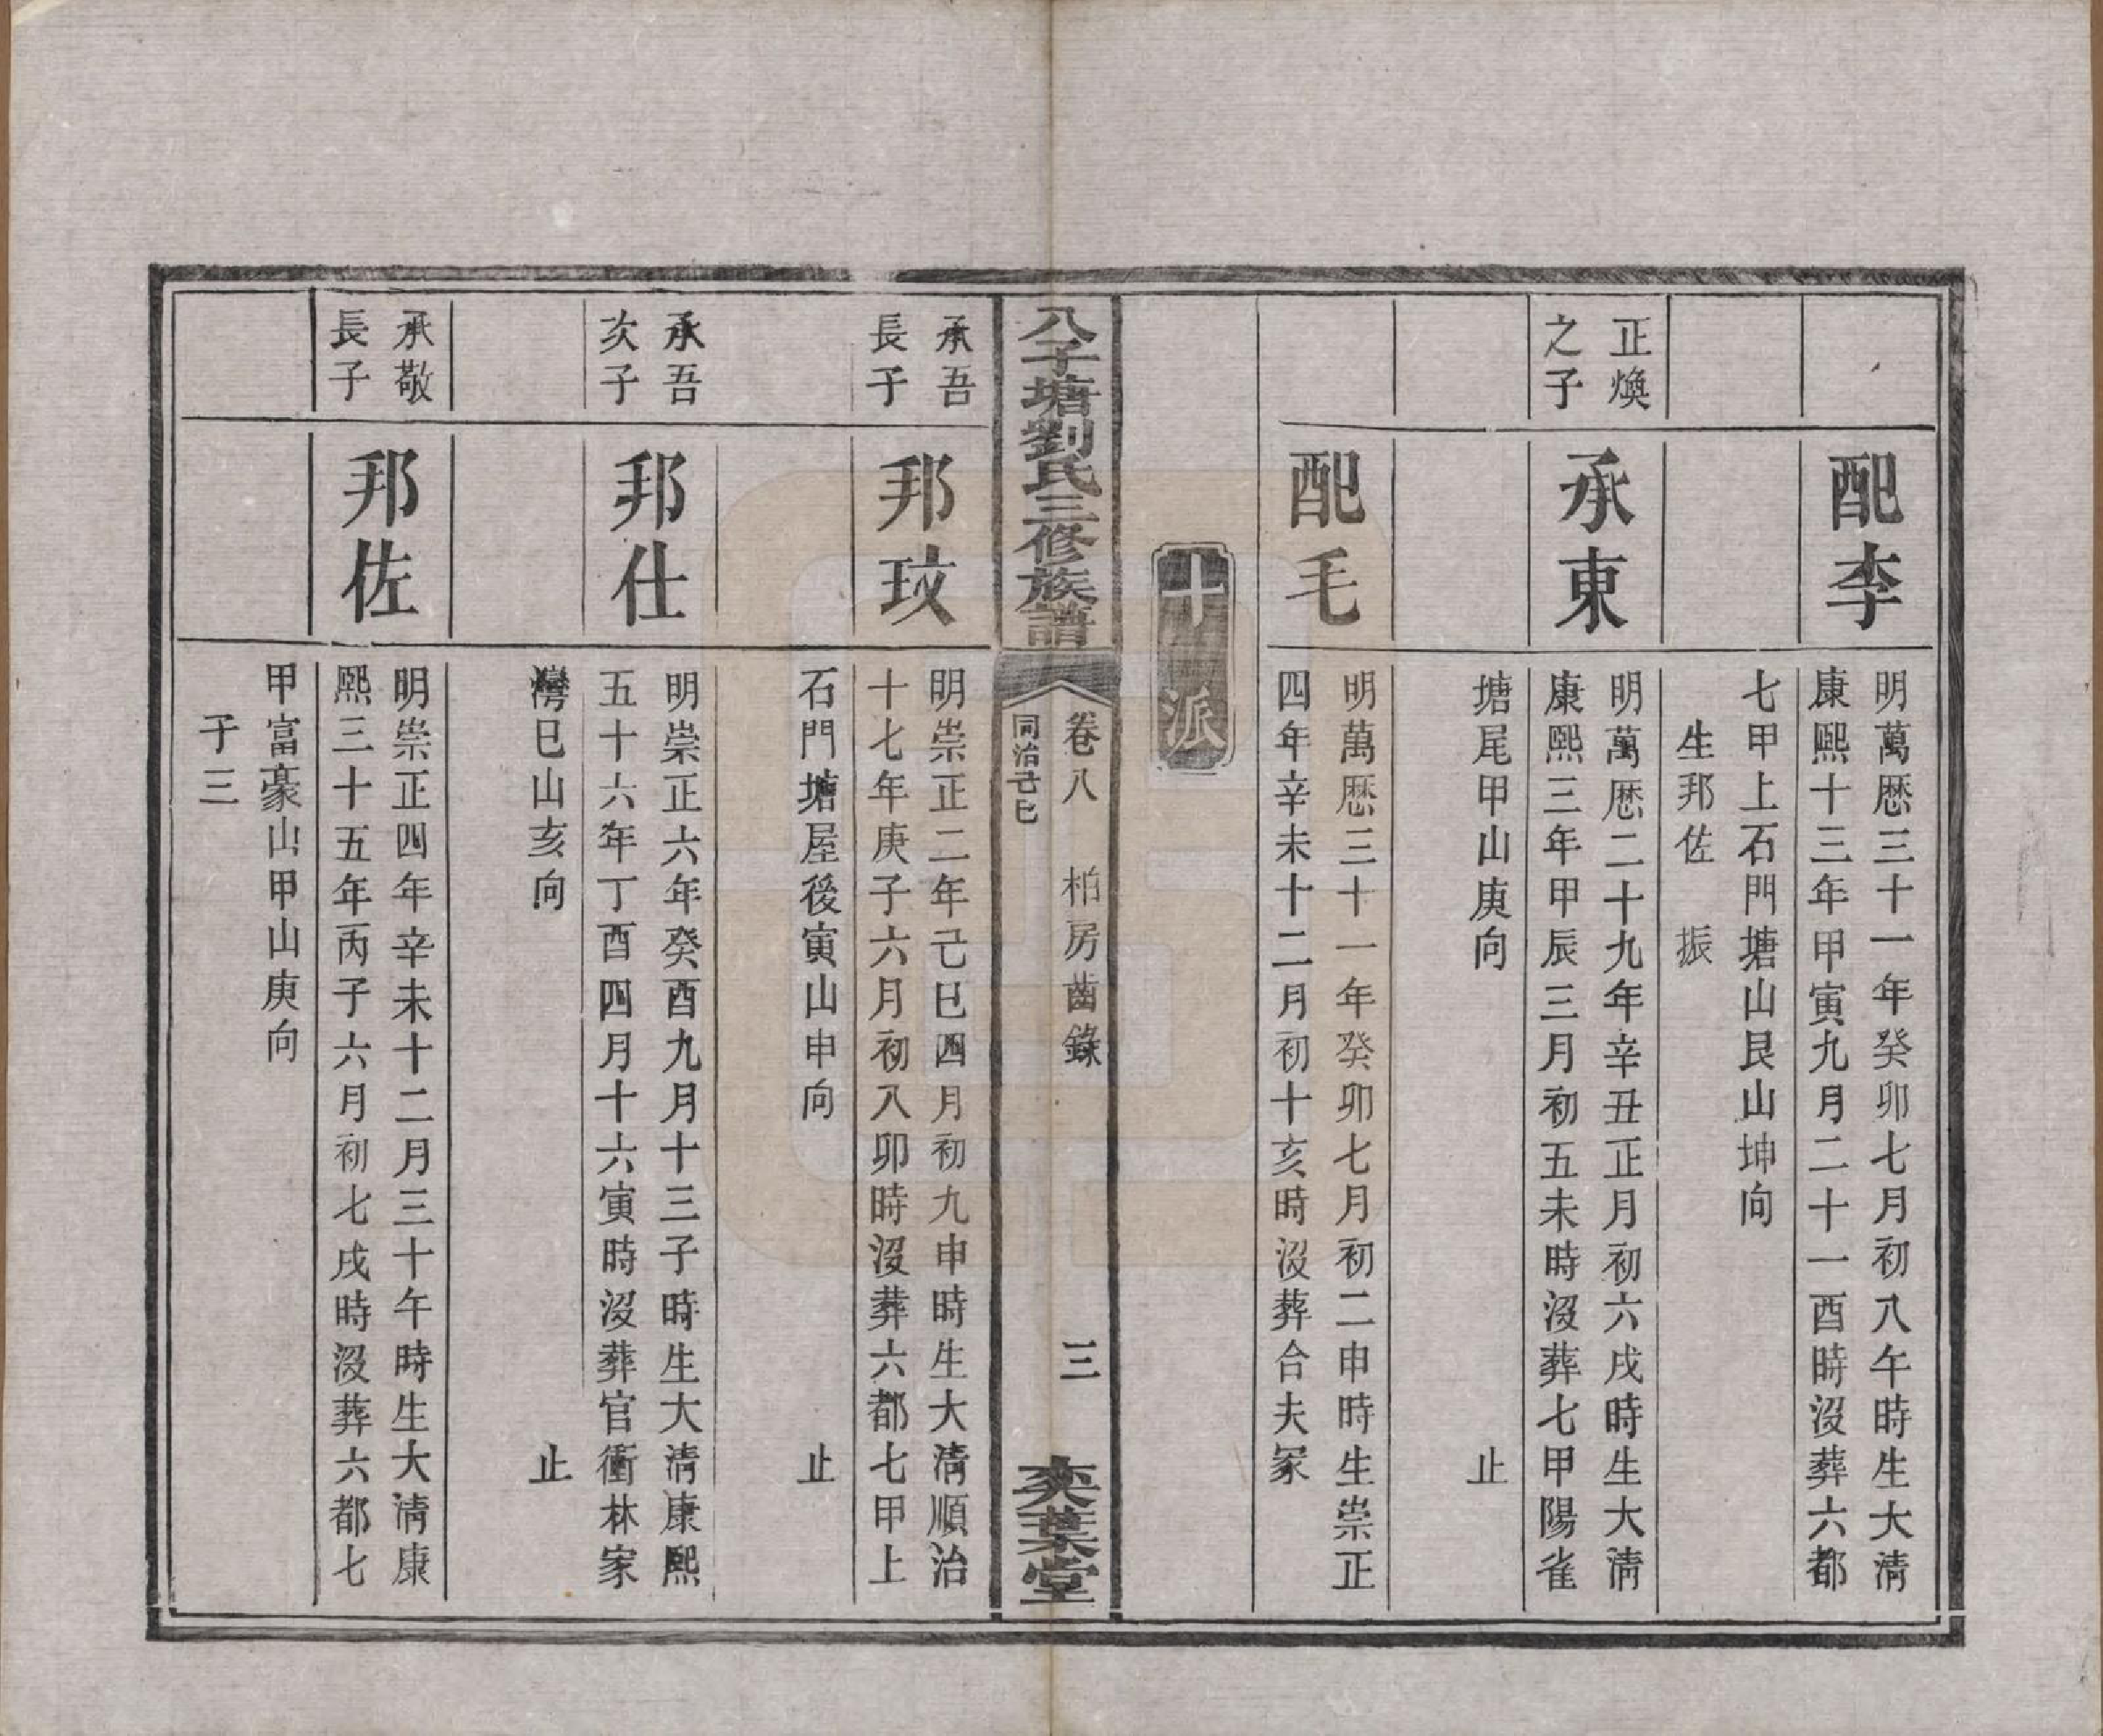 配李
明萬厯三十一年癸卯七月初八午時生大淸
康熙十三年甲寅九月二十一酉時沒葬六都
七甲上石門塘山艮山坤向
生邦佐　振
正煥
之子
承東
明萬厯二十九年辛丑正月初六戌時生大淸
康熙三年甲辰三月初五未時沒葬七甲陽雀
塘尾甲山庚向　止
配毛
明萬厯三十一年癸卯七月初二申時生崇正
四年辛未十二月初十亥時沒葬合夫冢
十派
八子塘劉氏三修族譜
卷八　柏房齒錄　三
同治己巳
奕葉堂
承吾
長子
邦玟
明崇正二年己巳四月初九申時生大淸順治
十七年庚子六月初八卯時沒葬六都七甲上
石門塘屋後寅山申向　止
承吾
次子
邦仕
明崇正六年癸酉九月十三子時生大淸康熙
五十六年丁酉四月十六寅時沒葬官衝林家
灣巳山亥向　止
承敬
長子
邦佐
明崇正四年辛未十二月三十午時生大淸康
熙三十五年丙子六月初七戌時沒葬六都七
甲富豪山甲山庚向
子三